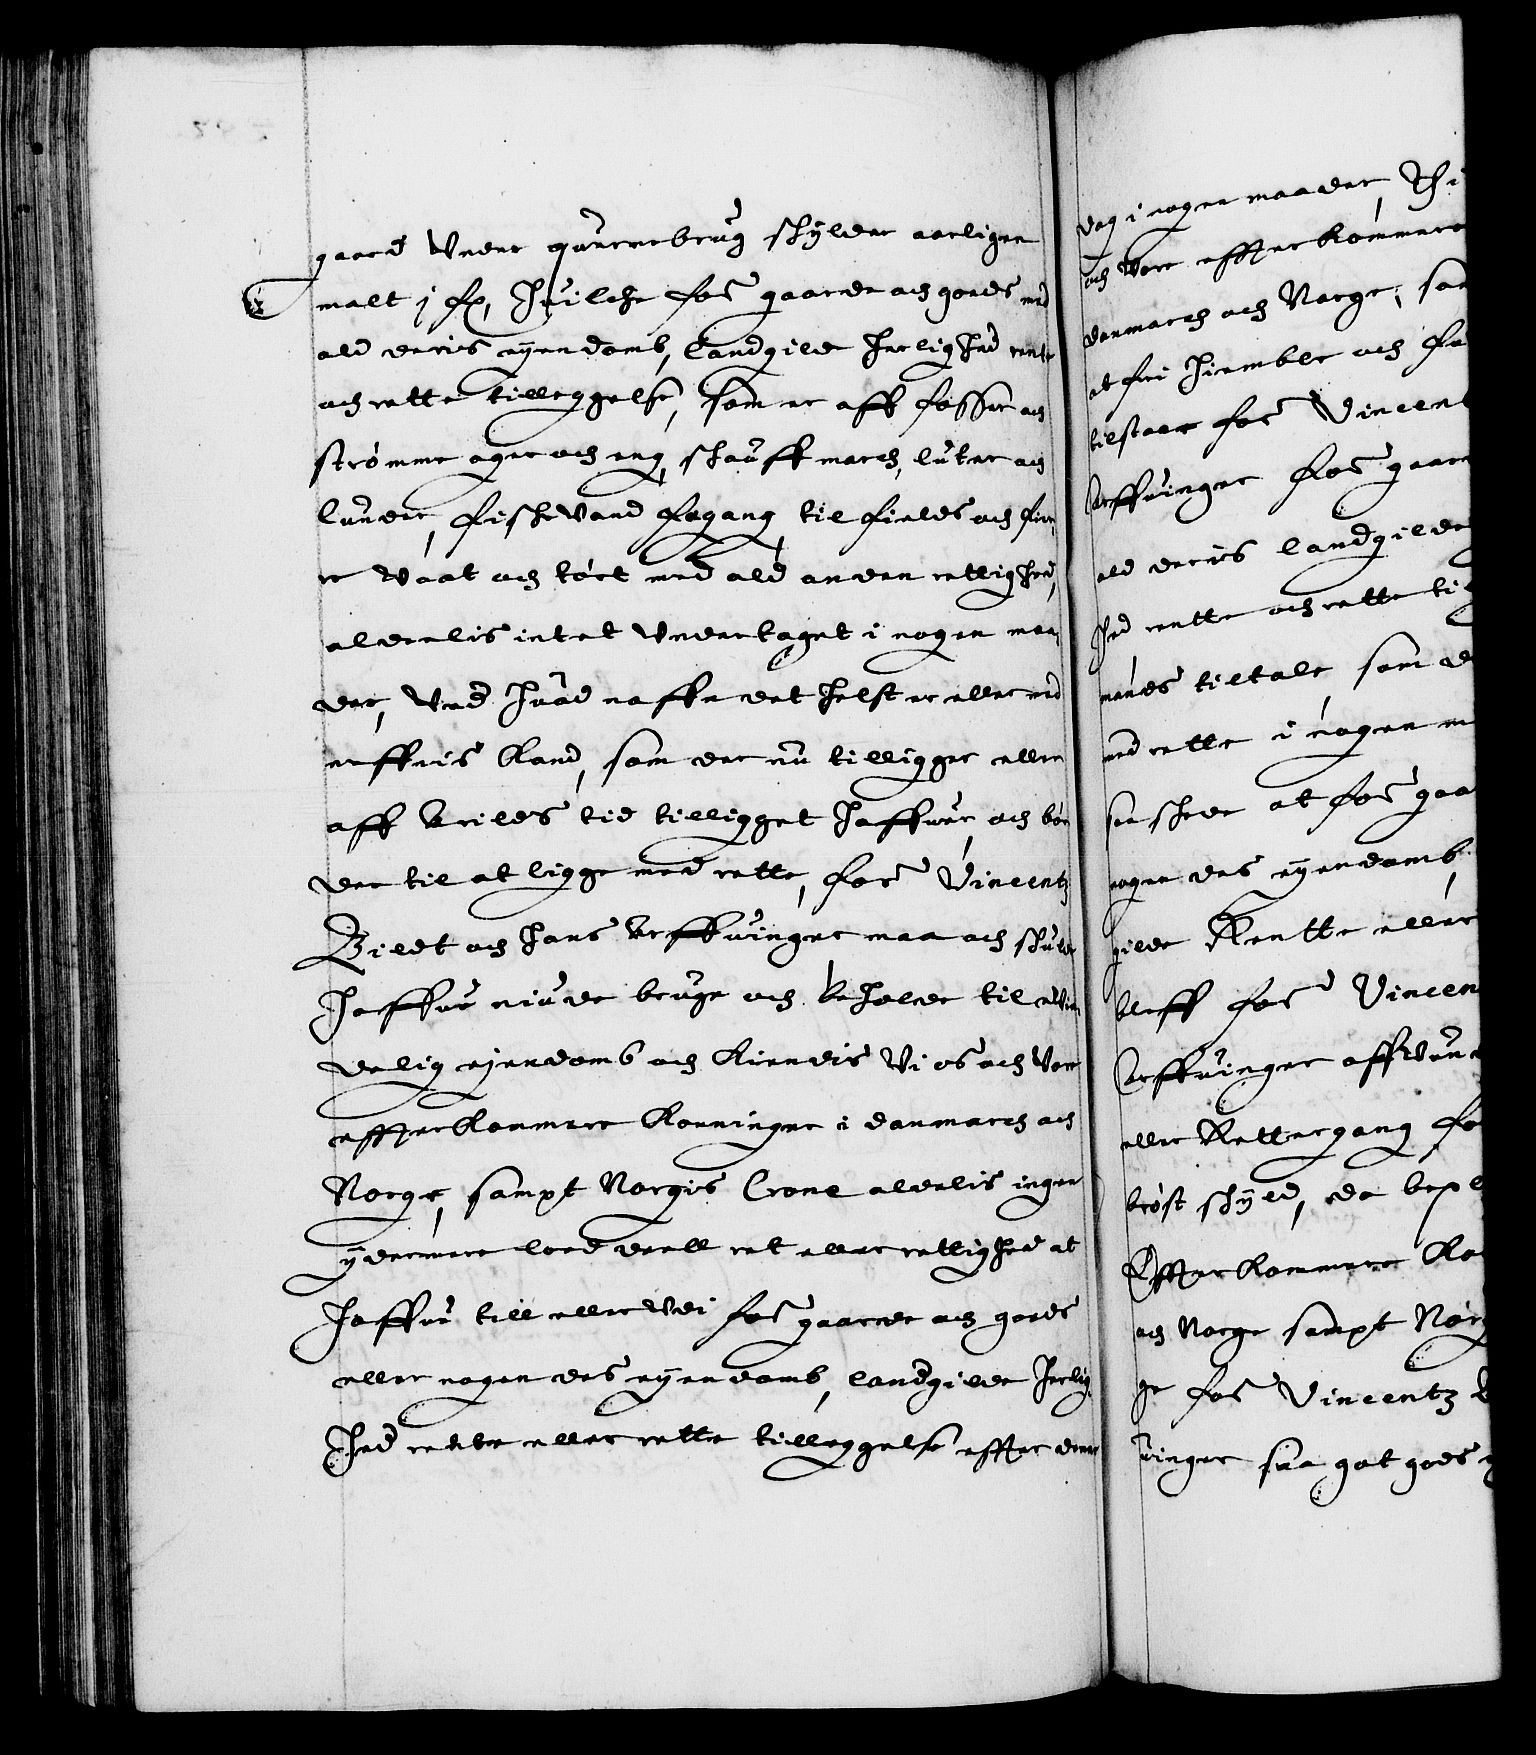 gaard Under querne brug schylder aarligen
malt j fx, Huilche forne gaarde och goeds med
ald deris eyendomb, landgilde herlighed rente
och rette tilleggelse, som er aff fosser och
strømme ager och eng, schouff march, luter och
lunder, fischevand fegang, til fields och fier¬
re vaat och tørt med ald anden rettighed,
aldelis intet undertaget i nogen maa¬
der, Ved huad naffn det helst er eller med
neffnis kand, som der nu tilligger eller
aff Arilds tid tilligget haffuer, och bør
der til at ligge med rette, forne Vincentz
Bildt och hans Arffuinger maa och schulde
haffue niude bruge och beholde til
delig eyendomb och kiendis Vi os och Vore
effterkommere konninger i danmarch och
Norge, sampt Norgis Crone aldelis ingen
ydermere lood deell ret eller rettighed at
haffue till eller udi forne gaarde och goeds
eller nogen des eyendomb, landgilde herlig¬
hed rente eller rette tilleggelse effter denne
dag i nogen maader, Thi
och Vore effterkommere
danmarch och Norge, som
at fri hiemble och
tilstaae forne Vincent
Arffuinger forne gaar
ald deris landgilde
hed rente och rette til
mands tiltale, som
med rette i nogen m
saa schede at forne gaa
nogen des eyendomb,
gilde Rentte eller
bleff forne Vincen
Arffuinger affvun
eller Rettergang, for
brøst schyld, da bepl
Effterkommere Ko
och Norge sampt Norg
ge forne Vincentz
uinger saa got gods